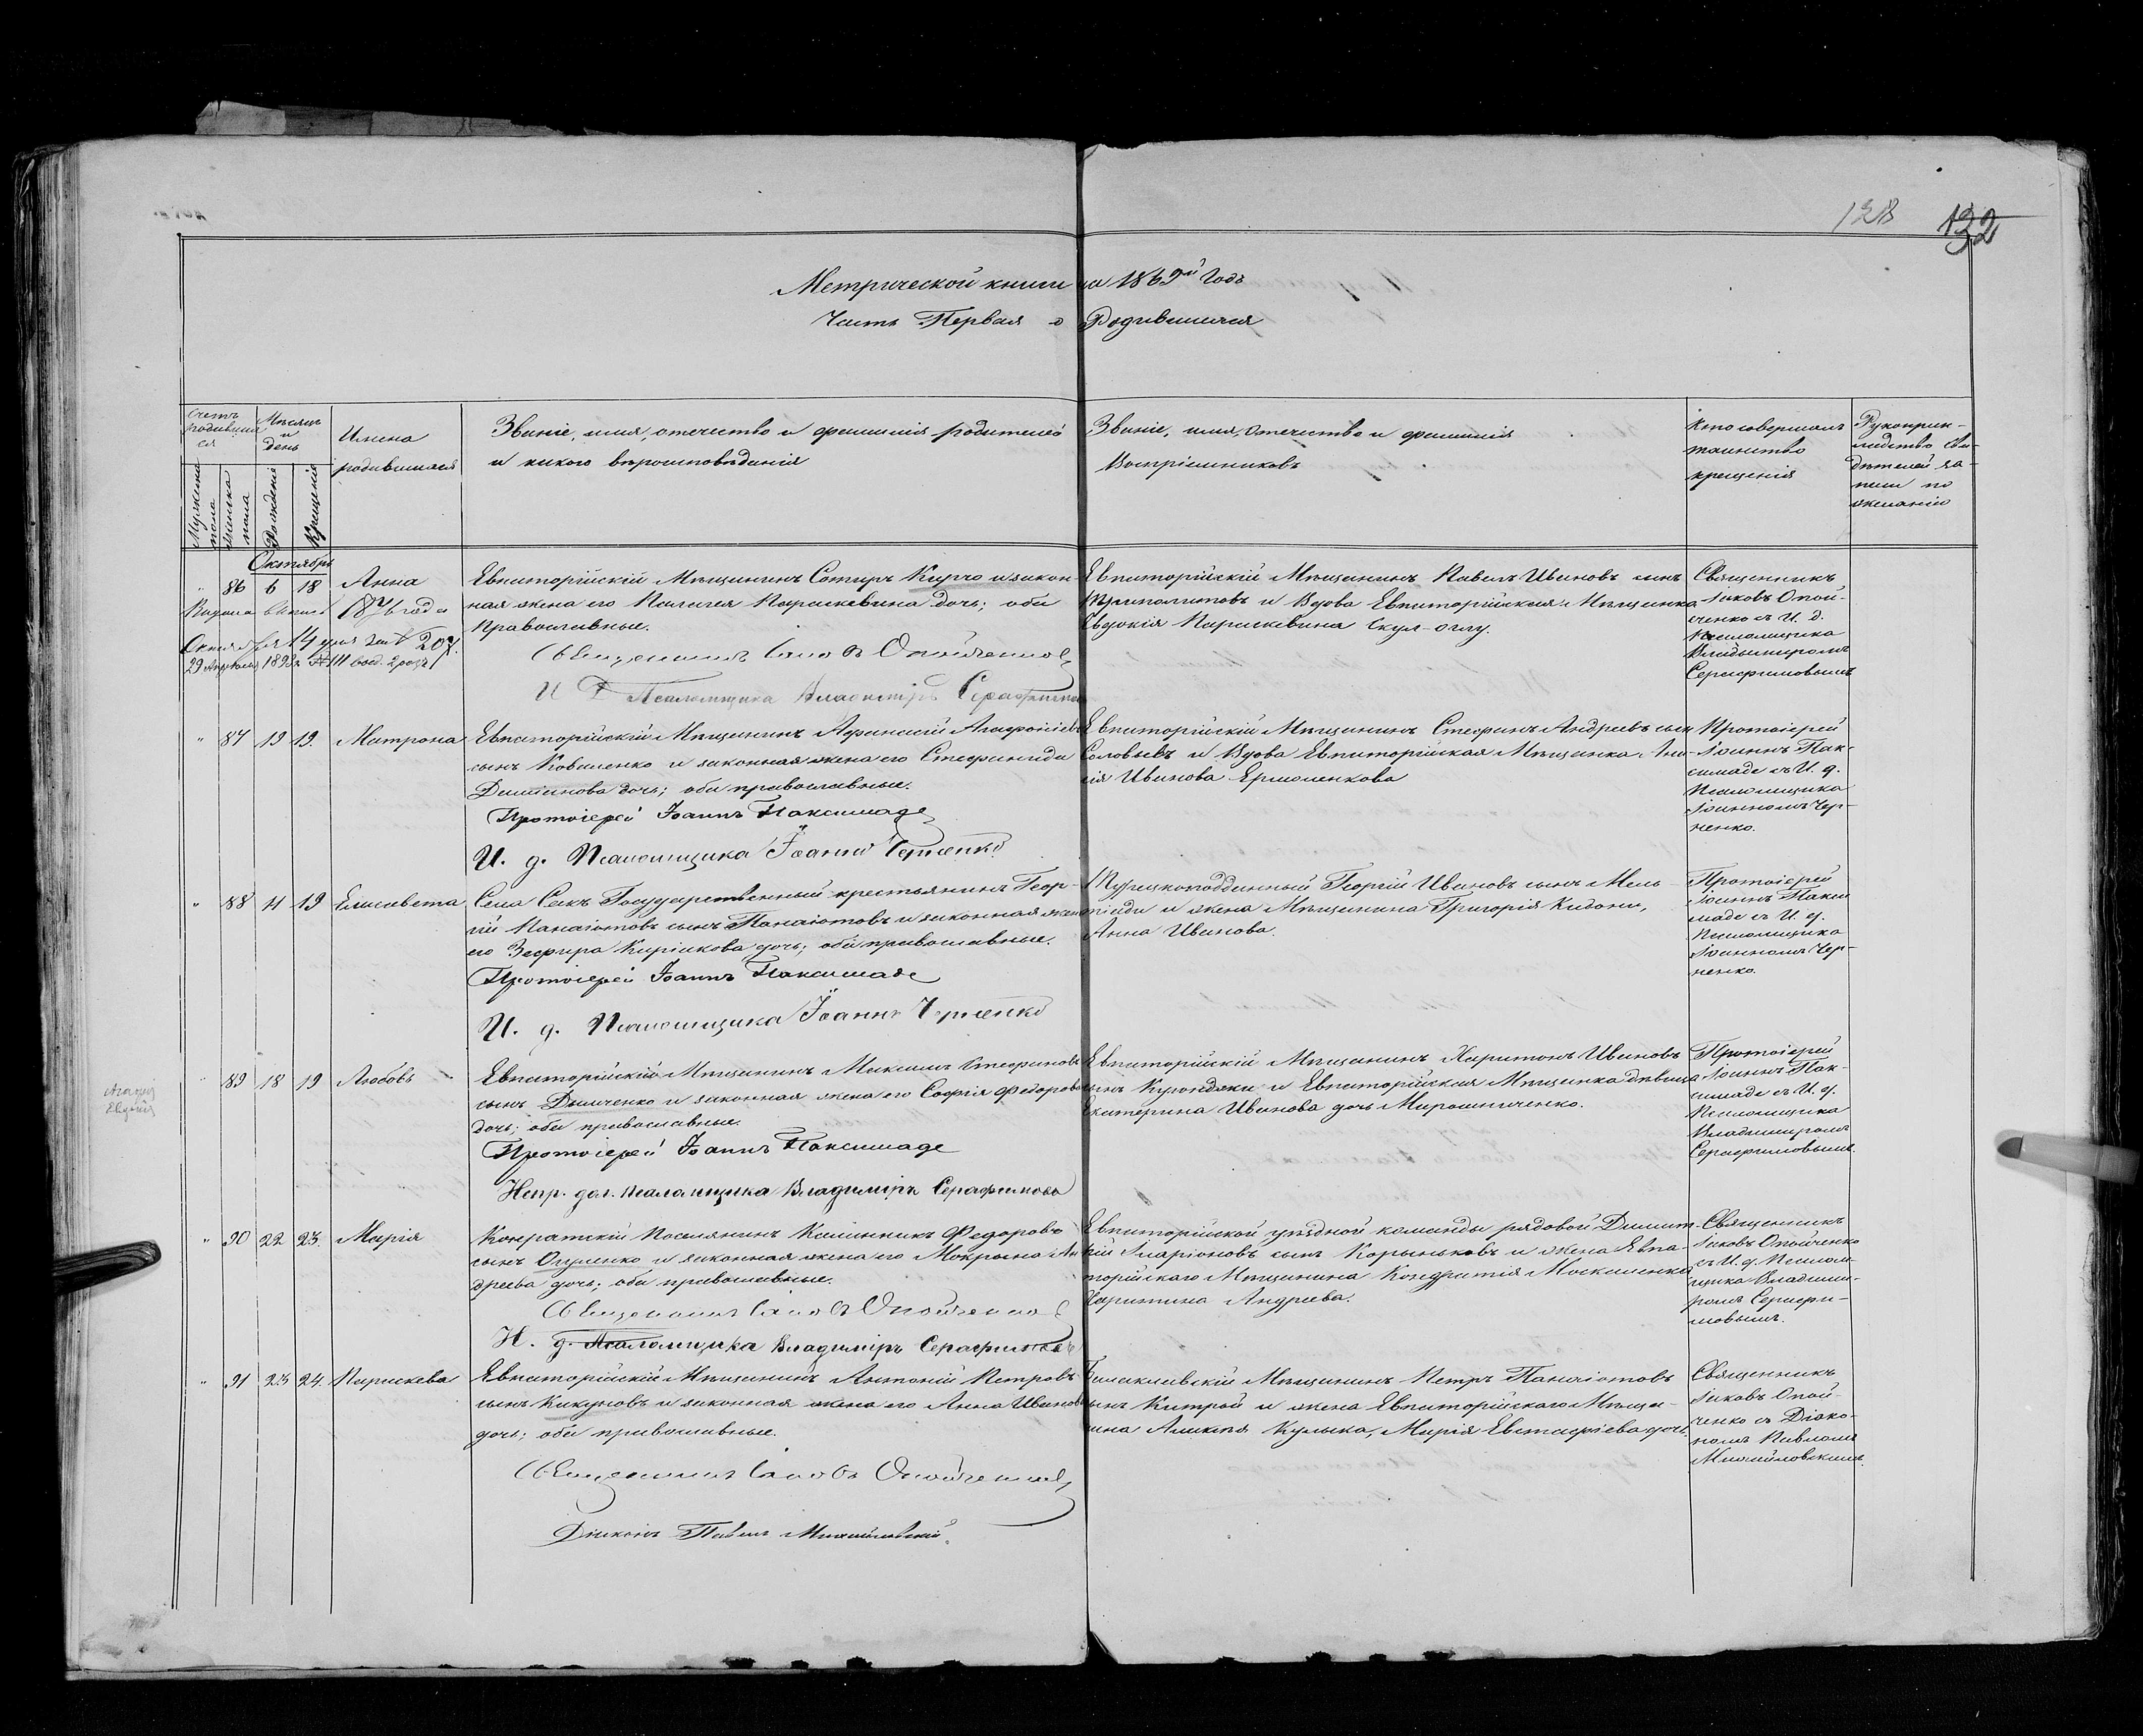 128 132
Метрической книги на 1869й Годъ
Часть Первая о Родившихся
Счетъ родившихся
Мужеска пола
Женска пола
Мѣсяцъ и день
Рожденія
Крещенія
Имена
родившихся
Званіе, имя, отечество и фамилія родителей
и какого вѣроисповѣданія
Званіе, имя, отечество и фамилія
Воспріемниковъ
Кто совершалъ
таинство
крещенія
Рукоприк-
ладство сви-
дѣтелей за-
писи по
желанію
Октябрь
" 86 6 18 Анна
Выдана 1871 года
Октября 14 дня за № 207.
29 Апрѣля 1892 г. № 111
Евпаторійскій Мѣщанинъ Сотиръ Курчо и закон-
ная жена его Пелагея Параскевина дочь; оба
Православные.
Священникъ Іаковъ Опойченко
И Д Псаломщика Владимиръ Серафимовъ
Евпаторійскій Мѣщанинъ Павелъ Ивановъ сынъ
Триполитовъ и Вдова Евпаторійская Мѣщанка
Евдокія Параскевина Скул-оглу.
Священникъ
Іаковъ Опой-
ченко съ И. д.
Псаломщика
Владимиромъ
Серафимовымъ
" 87 19 19. Матрона
Евпаторійскій Мѣщанинъ Афанасій Агафоніевъ
сынъ Коваленко и законная жена его Стефанида
Даміанова дочь; оба православные.
Протоіерей Іоаннъ Паксимаде
И. д. Псаломщика Іоаннъ Черненко
Евпаторійскій Мѣщанинъ Стефанъ Андреевъ сын
Соловьевъ и Вдова Евпаторійская Мѣщанка Ана-
сія Иванова Ермоленкова
Протоіерей
Іоаннъ Пак-
симаде съ И. д.
Псаломщика
Іоанномъ Чер-
ненко.
" 88 11 19 Елисавета
Села Сакъ Государственный крестьянинъ Геор-
гій Панаіотовъ сынъ Панаіотовъ и законная жена
его Зефира Киріакова дочь; оба православные.
Протоіерей Іоаннъ Паксимаде
И. д. Псаломщика Іоаннъ Черненко
Турецкоподданный Георгій Ивановъ сынъ Мель-
тиади и жена Мѣщанина Григорія Кидони,
Анна Иванова.
Протоіерей
Іоаннъ Пакси
маде съ И. д.
Псаломщика
Іоанномъ Чер-
ненко.
" 89 18 19 Любовь
Евпаторійскій Мѣщанинъ Максимъ Стефановъ
сынъ Дымченко и законная жена его Софія Федорова
дочь; оба православные.
Протоіерей Іоаннъ Паксимаде
Испр. дол. псаломщика Владимиръ Серафимовъ
Евпаторійскій Мѣщанинъ Харитонъ Ивановъ
сынъ Куронджи и Евпаторійская Мѣщанка дѣвица
Екатерина Иванова дочь Мирошниченко.
Протоіерей
Іоаннъ Пак-
симаде съ И. д.
Псаломщика
Владимиромъ
Серафимовымъ.
" 90 22 23. Марія
Конратскій Поселянинъ Калинникъ Федоровъ
сынъ Ощенко и законная жена его Мокрина Ан
дреева дочь; оба православные.
Священникъ Іаковъ Опойченко
И. д. Псаломщика Владимиръ Серафимовъ
Евпаторійской уѣздной команды рядовой Димит-
рій Иларіоновъ сынъ Корыньковъ и жена Евпа-
торійскаго Мѣщанина Кондратія Москаленка
Харитина Андреева.
Священникъ
Іаковъ Опойченко
съ И. д. Псалом-
щика Владими-
ромъ Серафи-
мовымъ.
" 91 23 24. Параскева
Евпаторійскій Мѣщанинъ Антоній Петровъ
сынъ Кикуновъ и законная жена его Анна Иванова
дочь; оба православные.
Священникъ Іаковъ Опойченко
Діаконъ Павелъ Михайловскій.
Балаклавскій Мѣщанинъ Петръ Панаіотовъ
сынъ Китрой и жена Евпаторійскаго Мѣща-
нина Алексѣя Кулыка, Марія Евстафіева дочь.
Священникъ
Іаковъ Опой-
ченко съ Діако-
номъ Павломъ
Михайловскимъ.